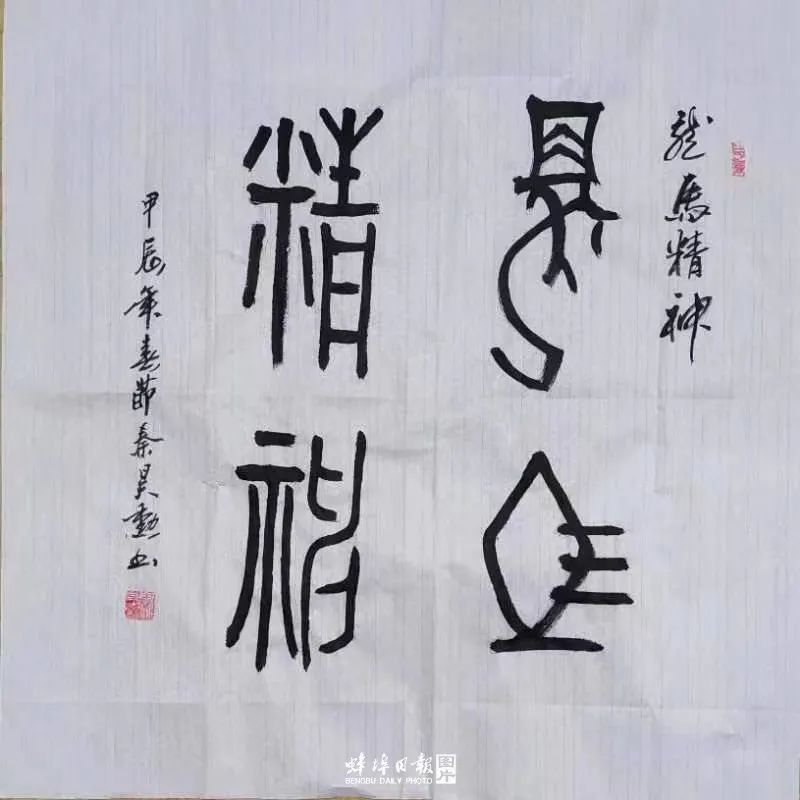 龙马精神
龍馬
精神
甲辰年春節秦昊勳书
蚌埠日報 图片
BENGBU DAILY PHOTO